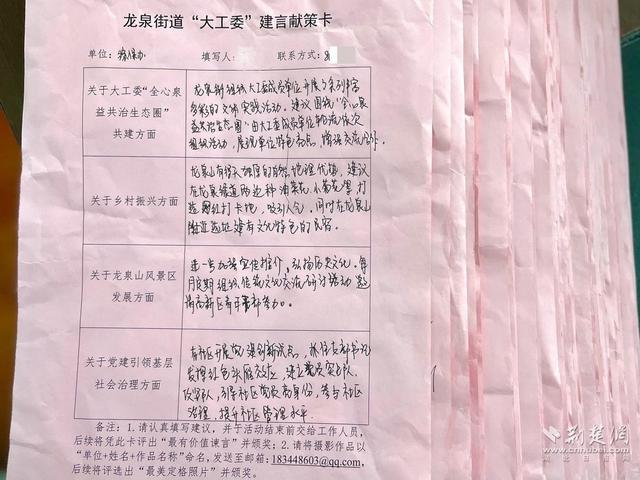 龙泉街道“大工委”建言献策卡
单位: 填写人: 联系方式:
关于大工委“全心泉
益共治生态圈”
共建方面
龙泉街组织大工委成员单位开展了系列丰富
多彩的文体实践活动。建议围绕“全心泉
益共治生态圈”由大工委成员单位轮流依次
组织活动,展现单位特色亮点,增强交流
关于乡村振兴方面
龙泉山有得天独厚的自然地理优势,建议
在龙泉绿道两边种油菜花、小菊花等,打
造网红打卡地,吸引人气。同时在龙泉山
附近选址建有文化特色的民宿。
关于龙泉山风景区
发展方面
进一步加强宣传推介,弘扬历史文化。每
月定期组织 文化交流研讨活动 邀
请高新区青年 参加。
关于党建引领基层
社会治理方面
在社区开展党建创新试点,抓住支部书记
发挥红色头雁效应,建立党员突击队、
引导社区党员亮身份,参与社区
治理,提升社区管理水平。
备注:1.请认真填写建议,并于活动结束前交给工作人员,
后续将凭此卡评出“最有价值谏言”并颁奖;2.请将摄影作品以
“单位+姓名+作品名称”命名,发送至邮箱:183448603@qq.com,
后续将评选出“最美定格照片”并颁奖。
荆楚网
www.cnhubei.com